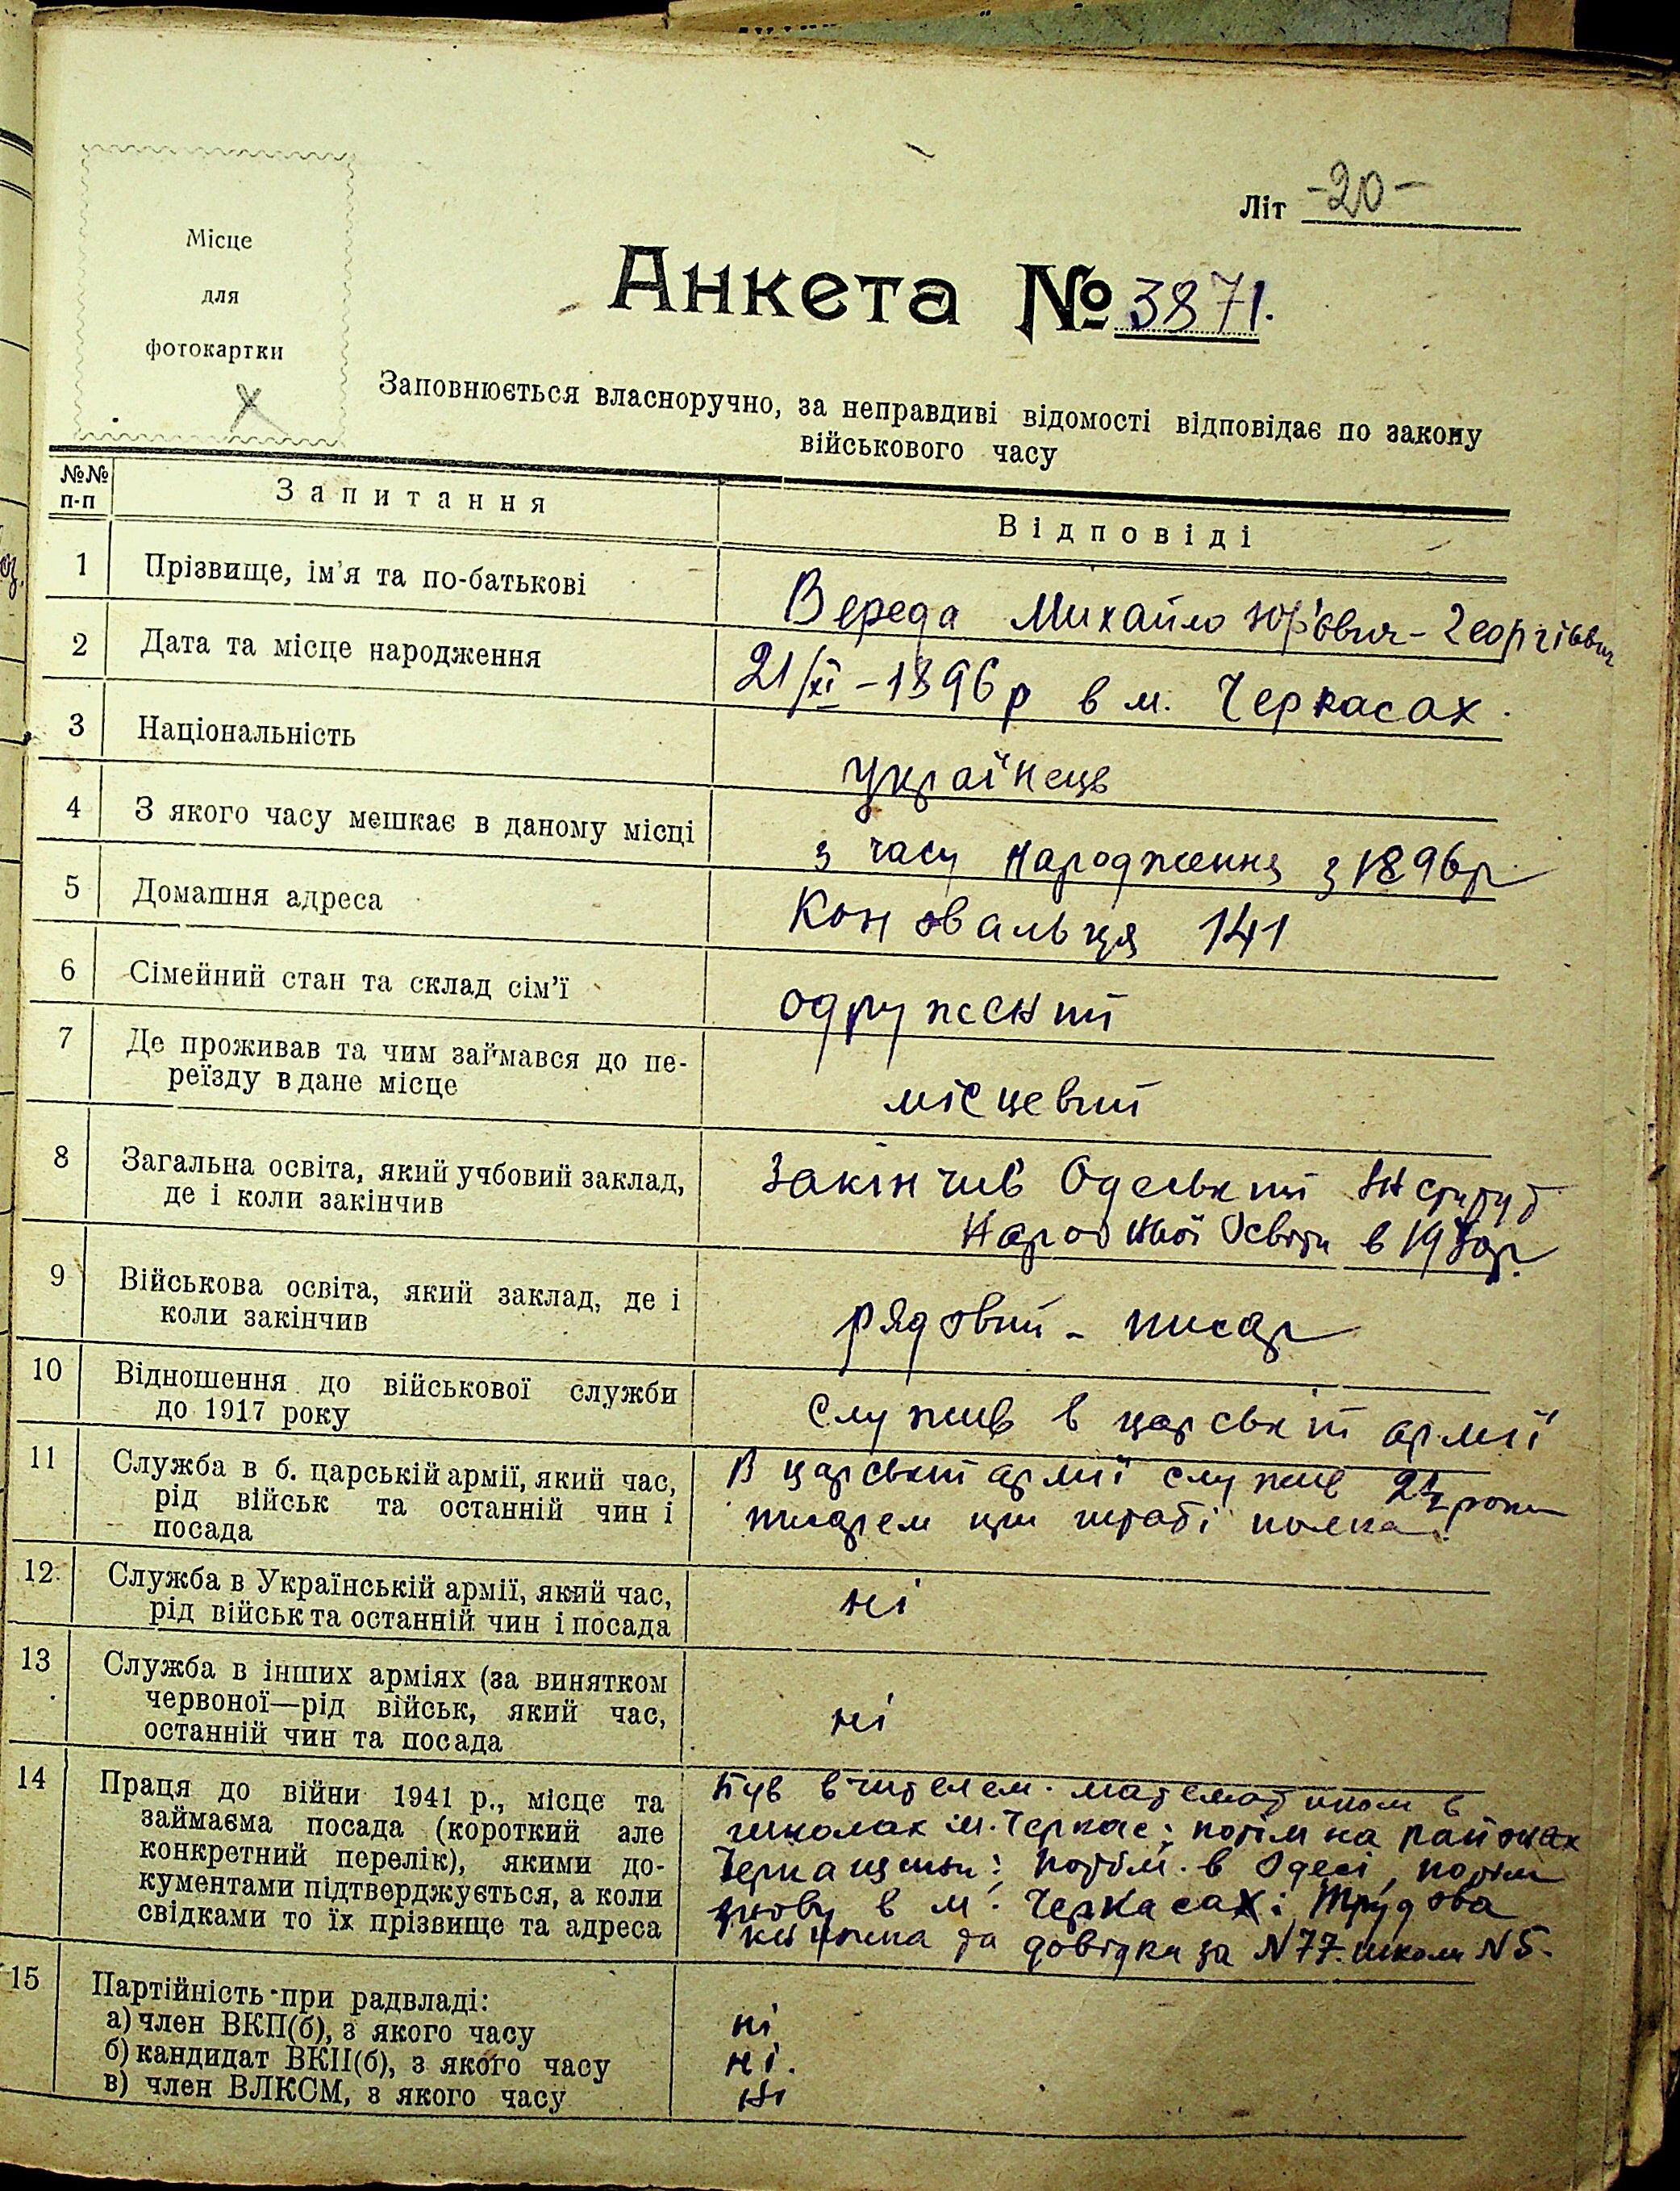 Літ -20-
Місце
для
фотокартки
Анкета № 3871.
Заповнюється власноручно, за неправдиві відомості відповідає по закону
військового часу
№№
п-п
Запитання
Відповіді
1 Прізвище, ім'я та по-батькові
Вереда Михайло Юр'євич - Георгієвич
2 Дата та місце народження
21/XI - 1896 р в м. Черкасах.
3 Національність
Українець
4 З якого часу мешкає в даному місці
з часу народження з 1896 р
5 Домашня адреса
Коновальця 141
6 Сімейний стан та склад сім'ї
одружений
7 Де проживав та чим займався до пе-
реїзду в дане місце
місцевий
8 Загальна освіта, який учбовий заклад,
де і коли закінчив
Закінчив Одеський Інститут
Народної Освіти в
9 Військова освіта, який заклад, де і
коли закінчив
рядовий - писар
10 Відношення до військової служби
до 1917 року
Служив в царській армії
11 Служба в б. царській армії, який час,
рід військ та останній чин і
посада
В царській армії служив 2½ роки
писарем при штабі полка.
12 Служба в Українській армії, який час,
рід військ та останній чин і посада
ні
13 Служба в інших арміях (за винятком
червоної—рід військ, який час,
останній чин та посада
ні
14 Праця до війни 1941 р., місце та
займаєма посада (короткий але
конкретний перелік), якими до-
кументами підтверджується, а коли
свідками то їх прізвище та адреса
Був вчителем математиком в
школах м. Черкас; потім на районах
Черкащини; потім в Одесі, потім
знову в м. Черкасах: Трудова
книжка та довідка за N77 школи N5.
15 Партійність при радвладі:
а) член ВКП(б), з якого часу
ні
б) кандидат ВКП(б), з якого часу
ні.
в) член ВЛКСМ, з якого часу
ні